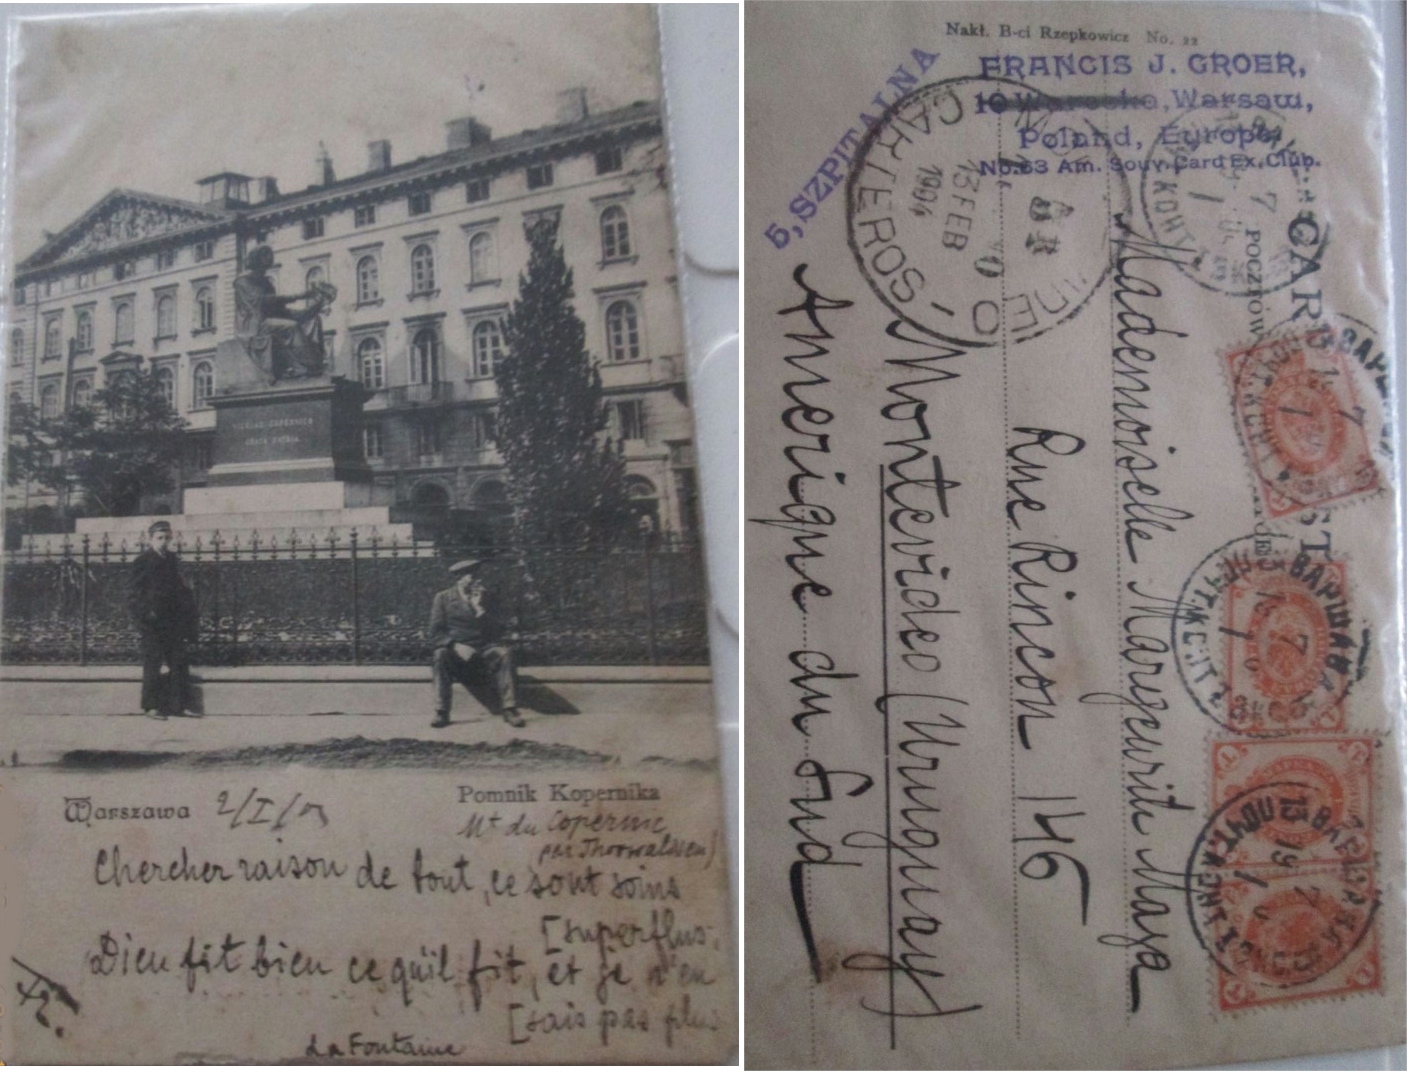 NICOLAO COPERNICO
GRATA PATRIA
Warszawa 2/I/
Pomnik Kopernika
Mt du Copernic
par Thorwaldsen)
Chercher raison de tout, ce sont soins
[superflus.
Dieu fit bien ce qu'il fit, et je n'en
[sais pas plus
La Fontaine
Nakł. B-ci Rzepkowicz No. 22
FRANCIS J. GROER,
10 Warecka, Warsaw,
Poland, Europe
No. 63 Am. Souv. Card Ex. Club.
5, SZPITALNA
CARTEROS
13 FEB
1904
Mademoiselle Marguerite Maga
Rue Rincon 146
Montevideo (Uruguay)
Amerique du Sud
ВАРШАВА
7
ВАРШАВА
7